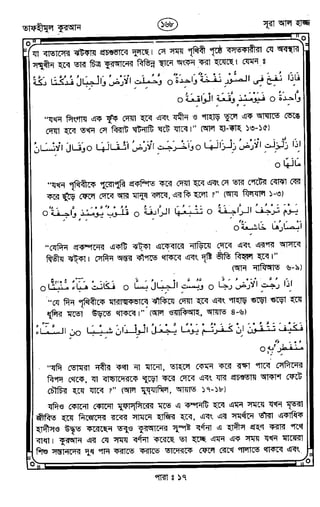 তাফহীমুল কুরআন
১৬৮
সূরা আল হাজ্জ
যা বাতাসের ঝটকায় প্রচণ্ডভাবে দুলছে। সে সময় পৃথিবী পৃষ্ঠে বসতকারীরা যে অবস্থার
সম্মুখীন হবে তার চিত্র কুরআনের বিভিন্ন স্থানে অংকন করা হয়েছে। যেমন :
فَإِذَا نُفِخَ فِي الصُّورِ نَفْخَةٌ وَّاحِدَةٌ ○ وَّحُمِلَتِ الْأَرْضُ وَالْجِبَالُ فَدُكَّتَا دَكَّةً
وَّاحِدَةً ○ فَيَوْمَئِذٍ وَّقَعَتِ الْوَاقِعَةُ ○
"যখন সিংগায় এক ফুঁক দেয়া হবে এবং যমীন ও পাহাড় তুলে এক আঘাতে ভেঙে
দেয়া হবে তখন সে বিরাট ঘটনাটি ঘটে যাবে।" (আল হা-ক্কাহ ১৩-১৫)
إِذَا زُلْزِلَتِ الْأَرْضُ زِلْزَالَهَا ○ وَأَخْرَجَتِ الْأَرْضُ أَثْقَالَهَا ○ وَقَالَ الْإِنْسَانُ
مَا لَهَا ○
"যখন পৃথিবীকে পুরোপুরি প্রকম্পিত করে দেয়া হবে এবং সে তার পেটের বোঝা বের
করে ছুঁড়ে ফেলে দেবে আর মানুষ বলবে, এর কি হলো?" (আয যিলযাল ১-৩)
يَوْمَ تَرْجُفُ الرَّاجِفَةُ ○ تَتْبَعُهَا الرَّادِفَةُ ○ قُلُوبٌ يَوْمَئِذٍ وَّاجِفَةٌ ○
أَبْصَارُهَا خَاشِعَةٌ ○
"যেদিন প্রকম্পনের একটি ঝটকা একেবারে নাড়িয়ে দেবে এবং এরপর আসবে
দ্বিতীয় ঝটকা। সেদিন অন্তর কাঁপতে থাকবে এবং দৃষ্টি ভীতি বিহ্বল হবে।"
(আন নাযিআত ৬-৯)
إِذَا رُجَّتِ الْأَرْضُ رَجًّا ○ وَّبُسَّتِ الْجِبَالُ بَسًّا ○ فَكَانَتْ هَبَاءً مُّنْبَثًّا ○
"যে দিন পৃথিবীকে মারাত্মকভাবে ঝাঁকিয়ে দেয়া হবে এবং পাহাড় গুঁড়ো গুঁড়ো হয়ে
ধূলির মতো উড়তে থাকবে।" (আল ওয়াকিআহ, আয়াত ৪-৬)
فَكَيْفَ تَتَّقُونَ إِنْ كَفَرْتُمْ يَوْمًا يَّجْعَلُ الْوِلْدَانَ شِيبًا ○ السَّمَاءُ
مُنْفَطِرٌ بِهِ ○
"যদি তোমরা নবীর কথা না মানো, তাহলে কেমন করে রক্ষা পাবে সেদিনের
বিপদ থেকে, যা বাচ্চাদেরকে বুড়ো করে দেবে এবং যার প্রচণ্ডতায় আকাশ ফেটে
চৌচির হয়ে যাবে?" (আল মুযযাম্মিল, আয়াত ১৭-১৮)
যদিও কোনো কোনো মুফাসসিরের মতে এ কম্পনটি হবে এমন সময়ে যখন মৃতরা
জীবিত হয়ে নিজেদের রবের সামনে হাজির হবে, এবং এর সমর্থনে তাঁরা একাধিক
হাদীসও উদ্ধৃত করেছেন তবুও কুরআনের সুস্পষ্ট বর্ণনা এ হাদীস গ্রহণ করার পথে
বাধা। কুরআন এর যে সময় বর্ণনা করেছে তা হচ্ছে এমন এক সময় যখন মায়েরা
শিশু সন্তানদের দুধ পান করাতে করাতে তাদেরকে ফেলে রেখে পালাতে থাকবে এবং
পারা : ১৭